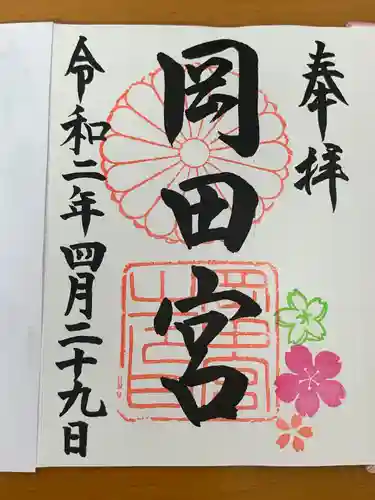 奉拝
岡田宮
令和二年四月二十九日